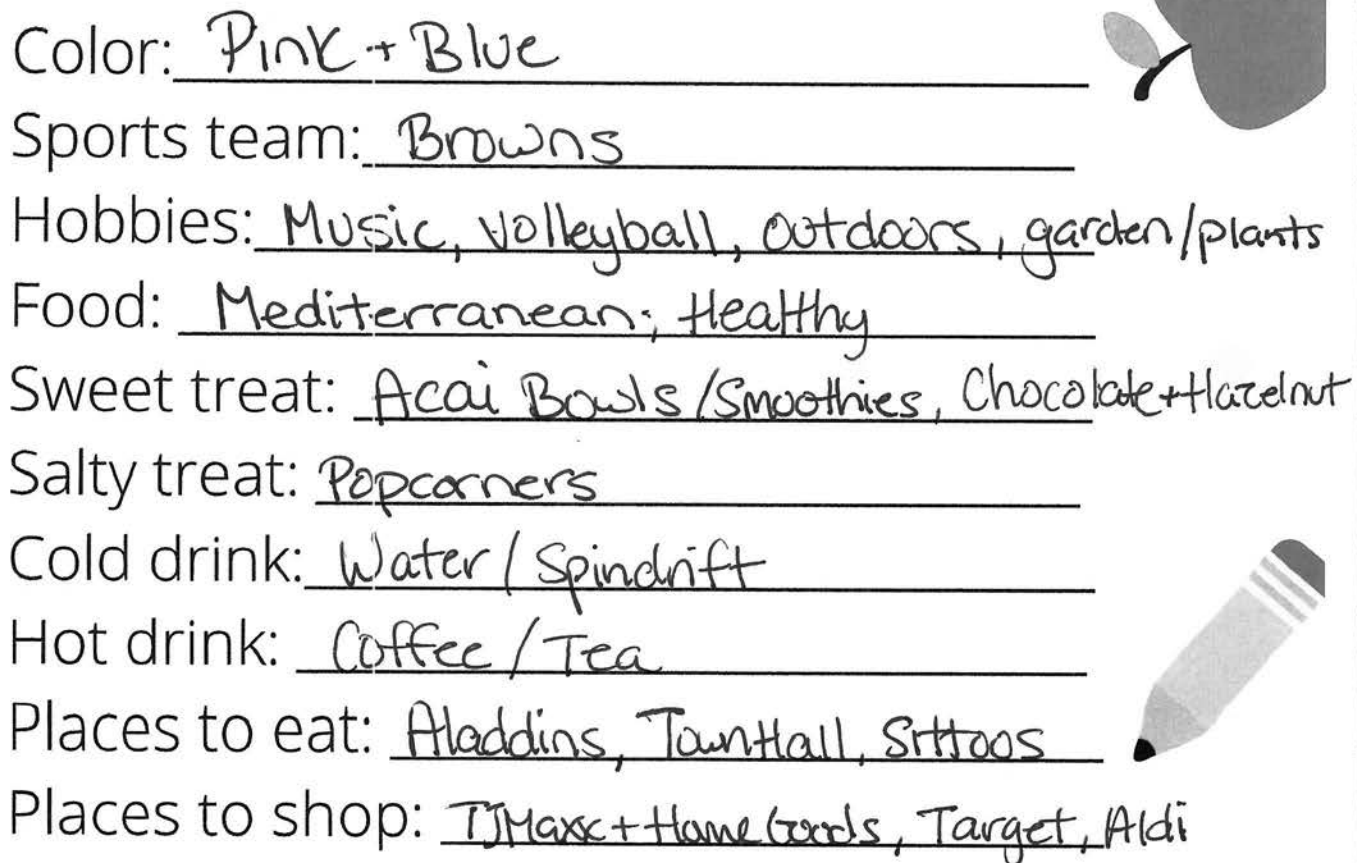 Color: Pink + Blue
Sports team: Browns
Hobbies: Music, Volleyball, Outdoors, garden/plants
Food: Mediterranean; Healthy
Sweet treat: Acai Bowls/Smoothies, Chocolate+Hazelnut
Salty treat: Popcorners
Cold drink: Water / Spindrift
Hot drink: Coffee / Tea
Places to eat: Aladdins, TownHall, Sittoos
Places to shop: TJMaxx + HomeGoods, Target, Aldi